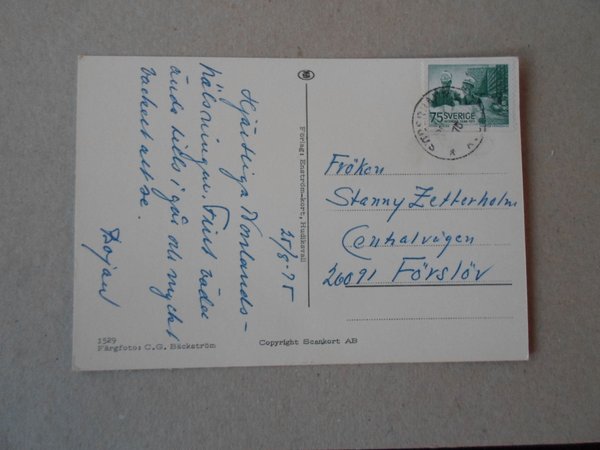 25/8-75
Hjärtliga Norrlands-
hälsningar. Fint väder
ända tills i går och mycket
vackert att se.
Förlag: Enström-kort, Hudiksvall
75 SVERIGE
Fröken
Stanny Zetterholm
Centralvägen
26091 Förslöv
1529
Färgfoto: C.G. Bäckström
Copyright Scankort AB